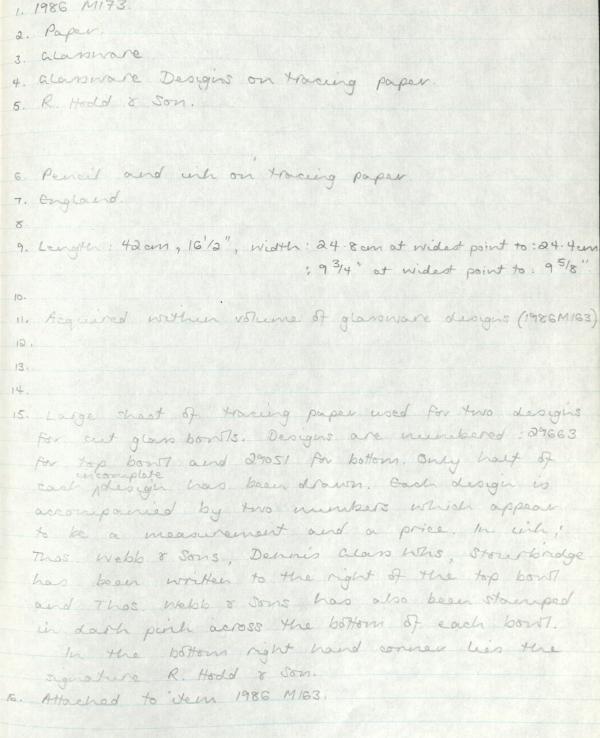 1. 1986 M173.
2. Paper.
3. Glassware
4. Glassware Designs on tracing paper.
5. R. Hodd & Son.
6. Pencil and ink on tracing paper
7. England.
8
9. Length: 42cm, 16 1/2", width: 24.8cm at widest point to: 24.4cm
: 9 3/4" at widest point to: 9 5/8".
10.
11. Acquired within volume of glassware designs (1986M163)
12.
13.
14.
15. Large sheet of tracing paper used for two designs
for cut glass bowls. Designs are numbered: 29663
for top bowl and 29051 for bottom. Only half of
each incomplete design has been drawn. Each design is
accompanied by two numbers which appear
to be a measurement and a price. In ink;
Thos Webb & Sons, Dennis Glass Whs, Stourbridge
has been written to the right of the top bowl
and Thos. Webb & Sons has also been stamped
in dark pink across the bottom of each bowl.
In the bottom right hand corner lies the
signature R. Hodd & Son.
16. Attached to item 1986 M163.